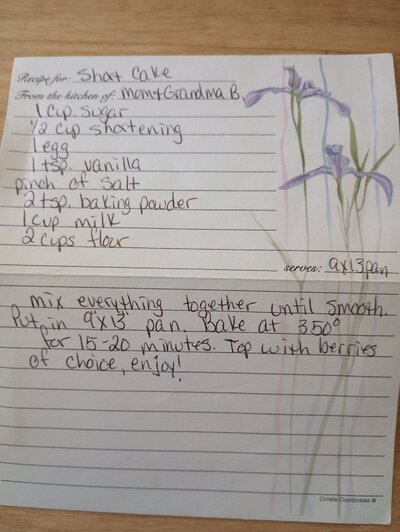 Recipe for: Short Cake
From the kitchen of: Mom & Grandma B.
1 cup sugar
1/2 cup shortening
1 egg
1 tsp. vanilla
pinch of salt
2 tsp. baking powder
1 cup milk
2 cups flour
serves: 9x13 pan
mix everything together until smooth.
Put in 9"x13" pan. Bake at 350°
for 15-20 minutes. Top with berries
of choice, enjoy!
Corelle Coordinates ®